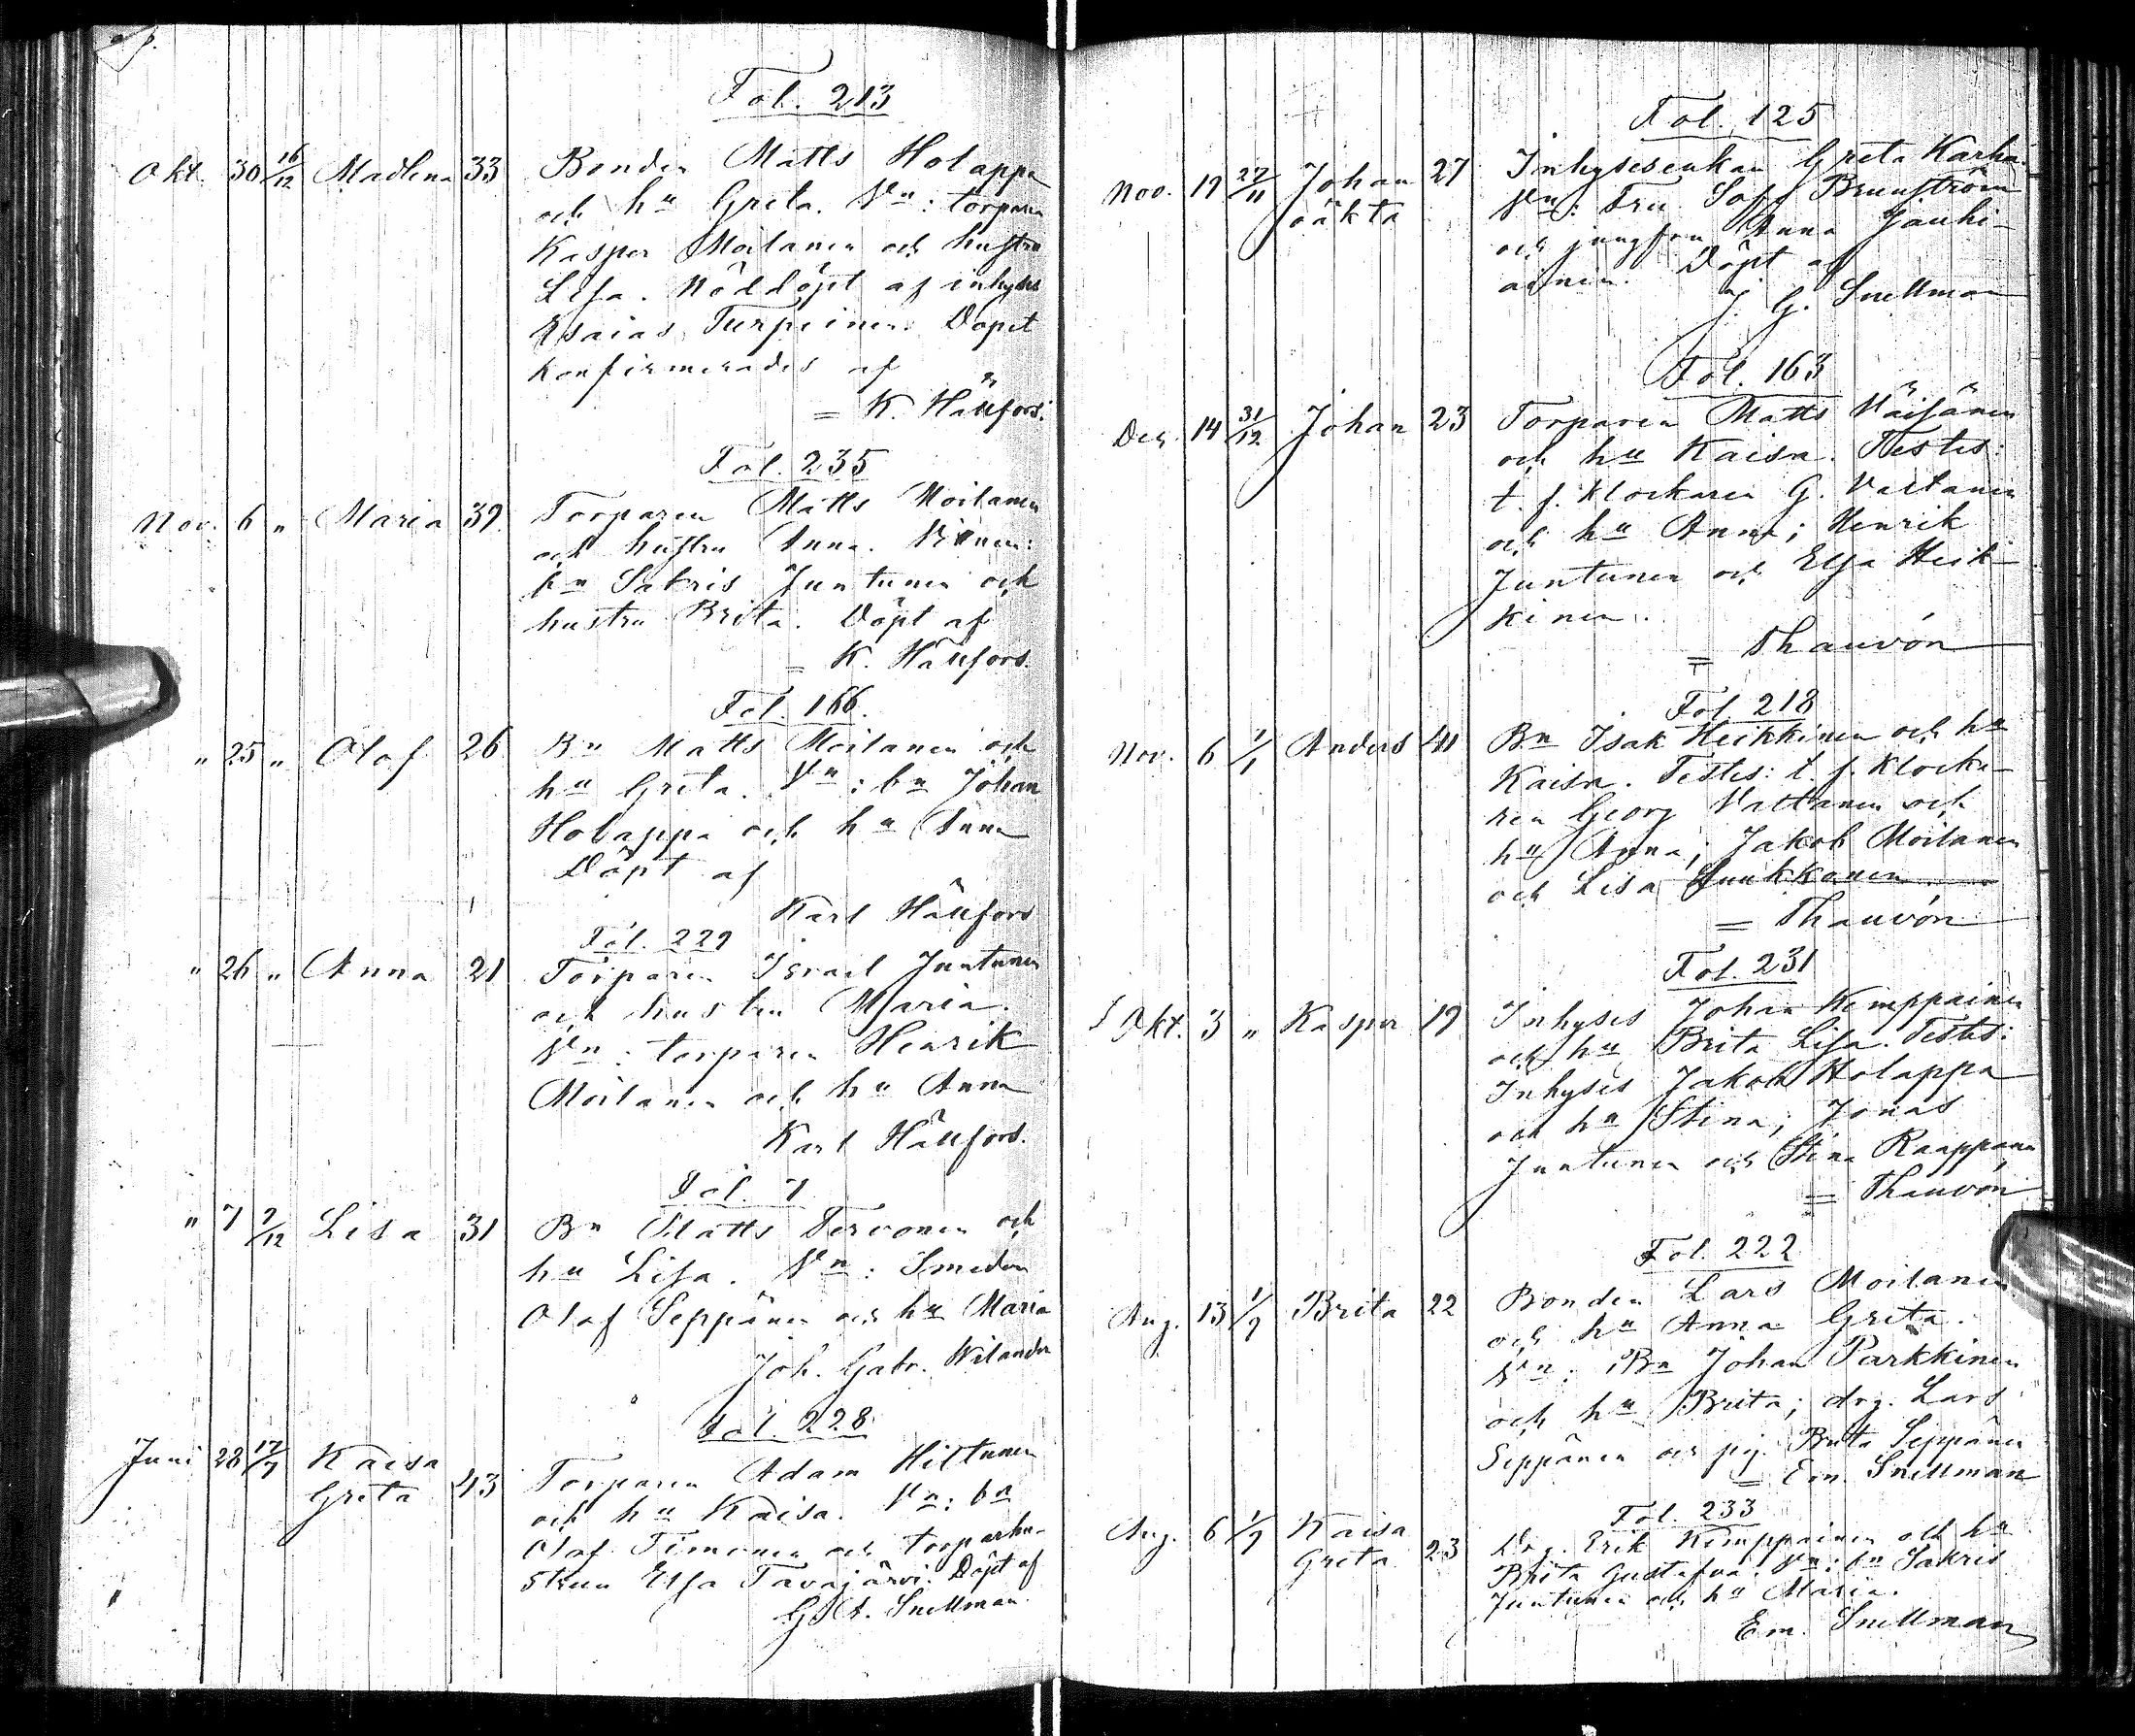 Fol. 213
Okt. 30 16/12 Madlena 33 Bonden Matts Holappa
och hu Greta. Vn: torparen
Kasper Moilanen och hustru
Lisa. Nöddöpt af inhyses
Esaias Turpeinen. Dopet
konfirmerades af
= K. Hällfors.
Fol. 235
Nov. 6 " Maria 39. Torparen Matts Moilanen
och hustru Anna. Vittnen:
bn Sakris Juntunen och
hustru Brita. Döpt af
= K. Hällfors.
Fol. 166.
" 25 " Olof 26 Bn Matts Moilanen och
hu Greta. Vn: bn Johan
Holappa och hu Anna
Döpt af
Karl Hällfors
Fol. 229
" 26 " Anna 21 Torparen Israel Juntunen
och hustru Maria.
Vn: torparen Henrik
Moilanen och hu Anna
Karl Hällfors.
Fol. 7
" 7 9/12 Lisa 31 Bn Matts Tervonen och
hu Lisa. Vn: Smeden
Olof Seppänen och hu Maria
Joh. Gabr. Wilander
Fol. 228.
Juni 28 17/7 Kaisa
Greta 43 Torparen Adam Hiltunen
och hu Kaisa. Vn: bn
Olof Timonen och torparhu-
strun Elsa Tavajärvi. Döpt af
G. A. Snellman.
Fol. 125
Nov. 19 27/11 Johan 27 Inhysesenkan Greta Karha
oäkta Vn: Fru Sofi Brunström
och jungfru Anna Jauhi-
ainen. Döpt af
J. G. Snellman
Fol. 163
Dec. 14 31/12 Johan 23 Torparen Matts Väisänen
och hu Kaisa. Testes:
t. f. Klockaren G. Vartanen
och hu Anna; Henrik
Juntunen och Elsa Heik-
kinen.
= Thauvón
Fol 218
Nov. 6 1/1 Anders 41 Bn Isak Heikkinen och hu
Kaisa. Testes: t. f. Klocka-
ren Georg Vattanen och
hu Anna; Jakob Moilanen
och Lisa Kuukkanen.
= Thauvón
Fol. 231
Okt. 3 " Kasper 19 Inhyses Johan Kemppainen
och hu Brita Lisa. Testes:
Inhyses Jakob Holappa
och hu Stina; Jonas
Juntunen och Stina Raappana
= Thauvón
Fol. 222
Aug. 13 1/9 Brita 22 Bonden Lars Moilanen
och hu Anna Greta.
Vn: Bn Johan Parkkinen
och hu Brita; drg. Lars
Seppänen och pig. Brita Seppänen
= Em. Snellman
Fol. 233
Aug. 6 1/9 Kaisa
Greta 23 Drg. Erik Kemppainen och hu
Brita Gustafva. Vn: bn Sakris
Juntunen och hu Maria.
Em. Snellman